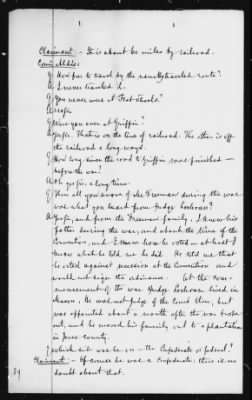 Claimant. - It is about 60 miles by railroad.
Com'r Aldis:
Q How far to travel by the usually traveled route?
A I never traveled it.
Q You never were at Flat Shoals?
A No sir.
Q Were you ever at Griffin?
A Yes sir. That is on the line of railroad. This other is off
the railroad a long ways.
Q How long since the road to Griffin was finished -
before the war?
A Oh yes sir, a long time.
Q Then all you know of John Freeman during the war
was what you heard from Judge Lochrane?
A Yes sir, and from the Freeman family. I knew his
father during the war, and about the time of the
Convention, and I know how he voted - at least I
know what he told me he did. He told me that
he voted against secession at the Convention and
would not sign the ordinance. At the com-
mencement of the war Judge Lochrane lived in
Macon. He was not judge of the Court then, but
was appointed about a month after the war broke
out, and he moved his family out to a plantation
in Jones county.
Q Which side was he on - the Confederate or federal?
Claimant - Of course he was a Confederate: there is no
doubt about that.